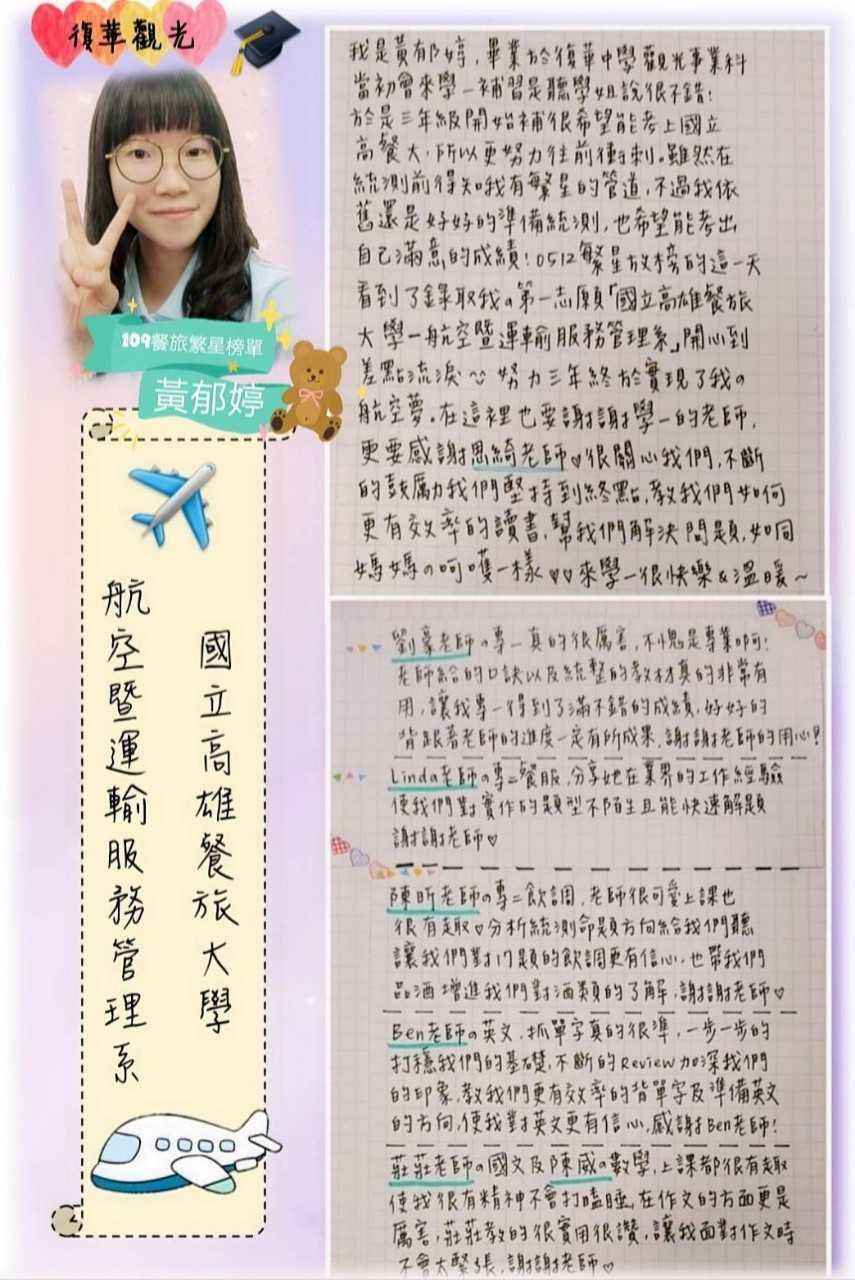 復華觀光
109餐旅繁星榜單
黃郁婷
國立高雄餐旅大學
航空暨運輸服務管理系
我是黃郁婷，畢業於復華中學觀光事業科
當初會來學一補習是聽學姐說很不錯!
於是三年級開始補很希望能考上國立
高餐大，所以更努力往前衝刺。雖然在
統測前得知我有繁星的管道，不過我依
舊還是好好的準備統測，也希望能考出
自己滿意的成績! 0512繁星放榜的這一天
看到了錄取我の第一志願「國立高雄餐旅
大學-航空暨運輸服務管理系」開心到
差點流淚~ 努力三年終於實現了我の
航空夢。在這裡也要謝謝學一的老師，
更要感謝思綺老師♡很關心我們，不斷
的鼓勵我們堅持到終點，教我們如何
更有效率的讀書，幫我們解決問題，如同
媽媽の呵護一樣♡♡來學一很快樂&溫暖~
劉豪老師の專一真的很厲害，不愧是專業啊!
老師給的口訣以及統整的教材真的非常有
用，讓我專一得到了滿不錯的成績，好好的
背跟著老師的進度一定有所成果，謝謝老師的用心!
Linda老師の專二餐服，分享她在業界的工作經驗
使我們對實作的題型不陌生且能快速解題
謝謝老師♡
陳昕老師の專二飲調，老師很可愛上課也
很有趣♡分析統測命題方向給我們聽
讓我們對17題的飲調更有信心，也帶我們
品酒增進我們對酒類的了解，謝謝老師♡
Ben老師の英文，抓單字真的很準，一步一步的
打穩我們的基礎，不斷的Review加深我們
的印象，教我們更有效率的背單字及準備英文
的方向，使我對英文更有信心，感謝Ben老師!
莊莊老師の國文及陳威の數學，上課都很有趣
使我很有精神不會打瞌睡，在作文的方面更是
厲害，莊莊教的很實用很讚，讓我面對作文時
不會太緊張，謝謝老師♡